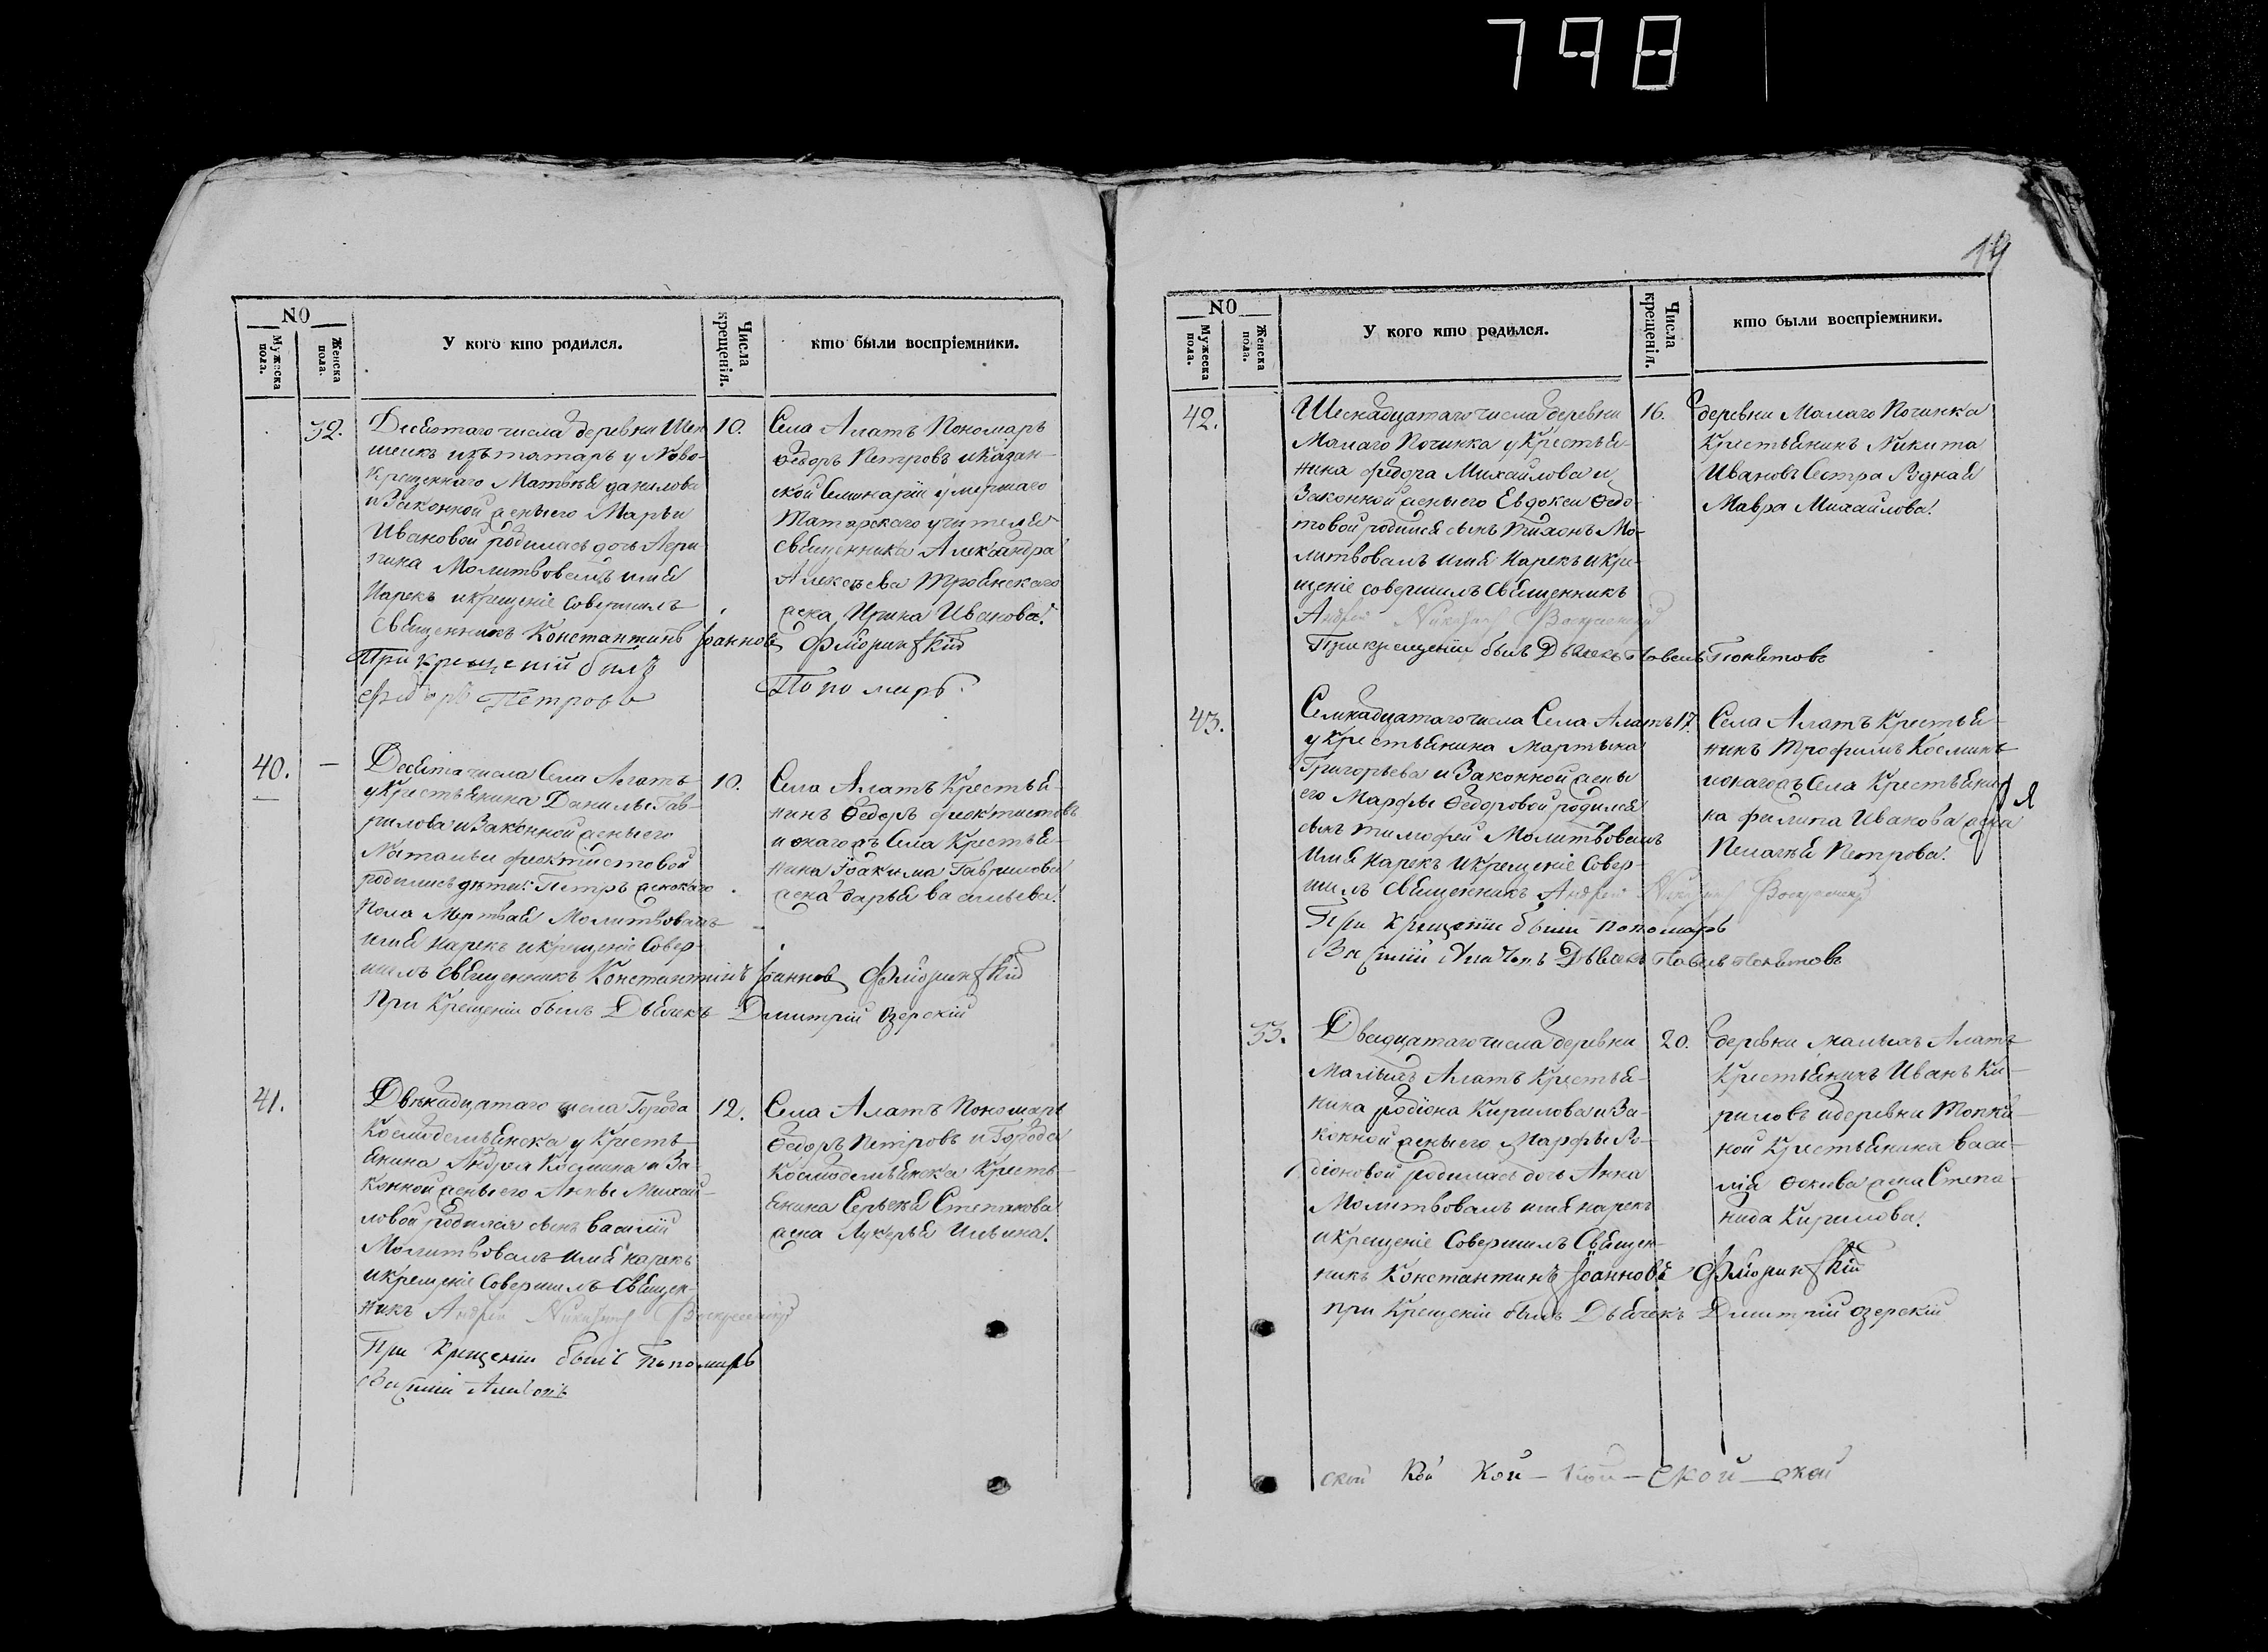 798
NO
Мужеска пола.
Женска пола.
У кого кто родился.
Числа крещенія.
кто были воспріемники.
32.
Десятаго числа деревни Шем
шекъ изъ татаръ у Ново-
крещеннаго Матвѣя данилова
и Законной жены его Марьи
Ивановой родилась дочь Агри
пина Молитвовалъ имя
Нарекъ и крещеніе Совершилъ
Священникъ Константинъ Іоанновъ
При крещеніи былъ
Федоръ Петровъ
10.
Села Алатъ Пономаръ
Ѳедоръ Петровъ и Казан-
ской Семинаріи умершаго
Татарскаго учителя
священника Александра
Алексѣева Троянскаго
жена Ирина Иванова.
Флоринскій
Пономарь.
40.
Десята числа Села Алатъ
у Крестьянина Данилы Гав-
рилова и Законной жены его
Натальи феоктистовой
родились дѣти: Петръ женскаго
Пола Мертвая Молитвовалъ
имя нарекъ и крещеніе Совер-
шилъ священникъ Константинъ Іоанновъ Флоринскій
при Крещеніи былъ Дьячекъ Дмитрій Озерскій
10.
Села Алатъ Крестья-
нинъ Ѳедоръ феоктистовъ
и онагожъ Села Крестья-
нина Іоакима Гаврилова
жена дарья васильева.
41.
Двѣнадцатаго числа Города
Космодемьянска у Кресть-
янина Андрея Космина и За-
конной жены его Анны Михай-
ловой родился сынъ василій
Молитвовалъ имя нарекъ
и крещеніе Совершилъ Священ-
никъ Андрей Воскресенскій
При Крещеніи былъ Пономарь
Василій
12.
Села Алатъ Пономарь
Ѳедоръ Петровъ и Города
Космодемьянска Кресть-
янина Сергѣя Степанова
жена Лукерья Ильина.
19
NO
Мужеска пола.
Женска пола.
У кого кто родился.
Числа крещенія.
кто были воспріемники.
42.
Шеснадцатаго числа деревни
Малаго Починка у Крестья-
нина федора Михайлова и
Законной жены его Евдокеи Ѳедо-
товой родился сынъ тихонъ Мо-
литвовалъ имя Нарекъ и Кре-
щеніе совершилъ Священникъ
Андрей Воскресенскій
При крещеніи былъ Дьячекъ Павелъ
16.
деревни Малаго Починка
Крестьянинъ Никита
Ивановъ Сестра Родная
Мавра Михайлова.
43.
Семнадцатаго числа Села Алатъ
у Крестьянина Мартына
Григорьева и Законной жены
его Марфы Ѳедоровой родился
сынъ тимофей Молитвовалъ
Имя нарекъ и крещеніе Совер-
шилъ Священникъ Андрей Воскресенскій
При крещеніи были пономарь
Василій Дьячекъ Павелъ
17.
Села Алатъ Крестья-
нинъ Трофимъ Косминъ
и онагожъ Села Крестьяни
на филипа Иванова жена
Пелагѣя Петрова.
я
33.
Двадцатаго числа деревни
Малыхъ Алатъ Крестья-
нина родіона Кирилова и За-
конной жены его Марфы Ро-
діоновой родилась дочь Анна
Молитвовалъ имя нарекъ
и крещеніе Совершилъ Священ-
никъ Константинъ Іоанновъ Флоринскій
при Крещеніи былъ Дьячекъ Дмитрій Озерскій
20.
деревни малыхъ Алатъ
Крестьянинъ Иванъ Ки-
риловъ и деревни Топки-
ной Крестьянина васи-
лія жена Степа-
нида Кирилова.
ской кой кой - кой - ской - ской